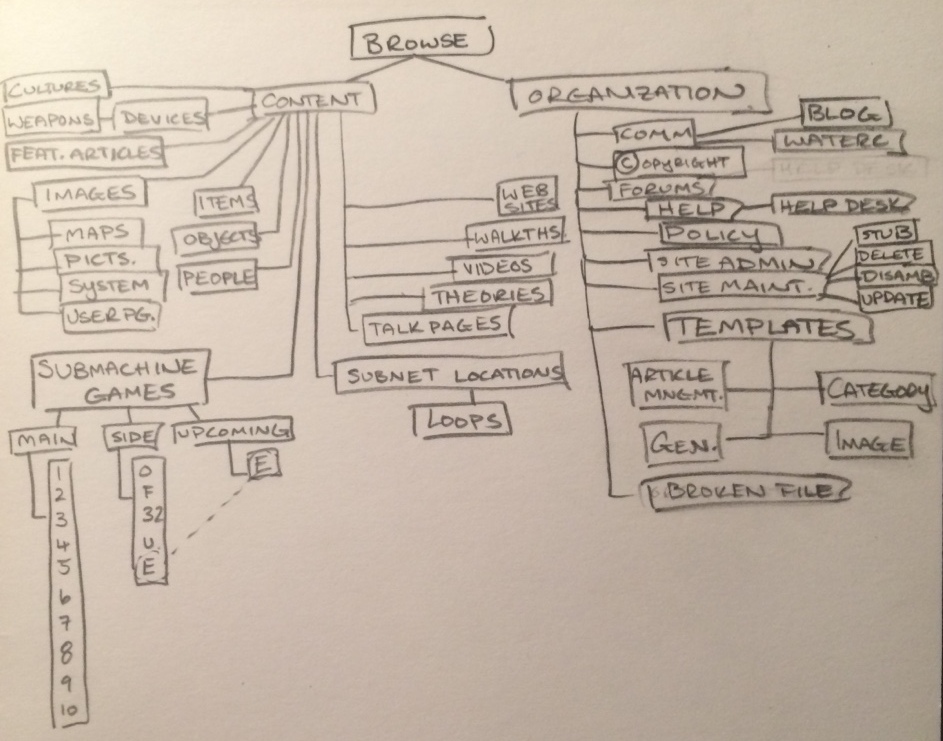 BROWSE
CONTENT
ORGANIZATION
CULTURES
WEAPONS
DEVICES
FEAT. ARTICLES
IMAGES
MAPS
PICTS.
SYSTEM
USERPG.
ITEMS
OBJECTS
PEOPLE
WEB
SITES
WALKTHS.
VIDEOS
THEORIES
TALK PAGES
SUBMACHINE
GAMES
MAIN
1
2
3
4
5
6
7
8
9
10
SIDE
0
F
32
U
E
UPCOMING
E
SUBNET LOCATIONS
LOOPS
COMM
BLOG
WATERC
©OPYRIGHT
HELP DESK
FORUMS
HELP
HELP DESK
POLICY
SITE ADMIN
SITE MAINT.
STUB
DELETE
DISAMB
UPDATE
TEMPLATES
ARTICLE
MNGMT.
CATEGORY
GEN.
IMAGE
BROKEN FILE